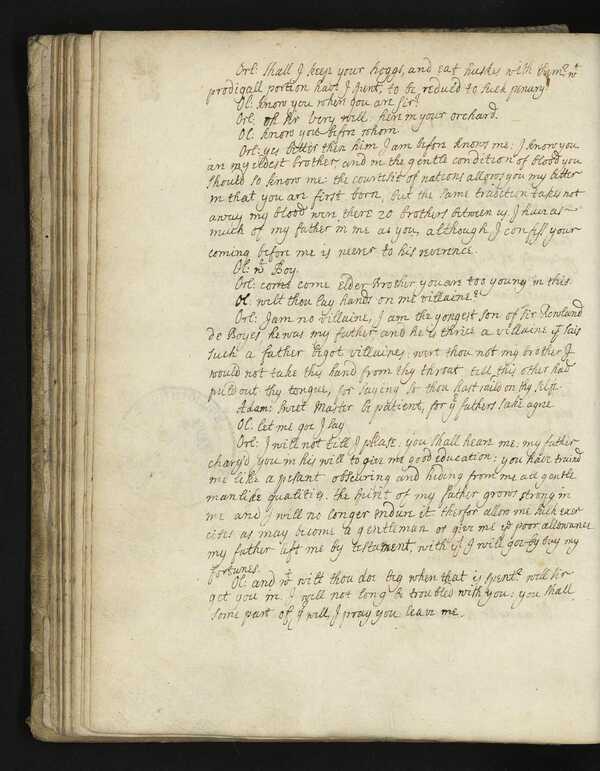 Orl: Shall I keep your hoggs, and eat huskes with them? wt
prodigall portion have I spent, to be reduced to such penury?
Ol: know you where you are Sir?
Orl: oh Sr very well: here in your orchard.
Ol: know you before whom.
Orl: yes better then him I am before knows me: I know you
are my eldest brother, and in the gentle condition of blood you
should so know me: the courtesie of nations allows you my better
in that you are first born, but the same tradition takes not
away my blood were there 20 brothers between us, I have as
much of my father in me as you, although, I confess your
coming before me is neerer to his reverence.
Ol: wt Boy.
Orl: come come Elder Brother you are too young in this.
Ol. wilt thou lay hands on me villaine?
Orl: I am no villaine, I am the yongest son of Sir Rowland
de Boyes he was my father and he is thrice a villaine yt sais
such a father begot villaines. wert thou not my brother I
would not take this hand from thy throat till this other had
puld out thy tongue, for saying so thou hast raild on thy self.
Adam: Sweet Master be patient, for yr fathers sake agree
Ol: let me goe I say
Orl: I will not till I please: you shall heare me: my father
charg'd you in his will to give me good education: you have traind
me like a pesant obscuring and hiding from me all gentle
manlike qualities. the spirit of my father grows strong in
me and I will no longer endure it: therfor allow me such exer
cises as may become a gentleman or give me poor allowance
my father left me by testament, with it I will goe buy my
fortunes.
Ol: and wt wilt thou doe beg when that is spent? well Sir
get you in. I will not long be troubled with you: you shall
some part of yr will, I pray you leave me.